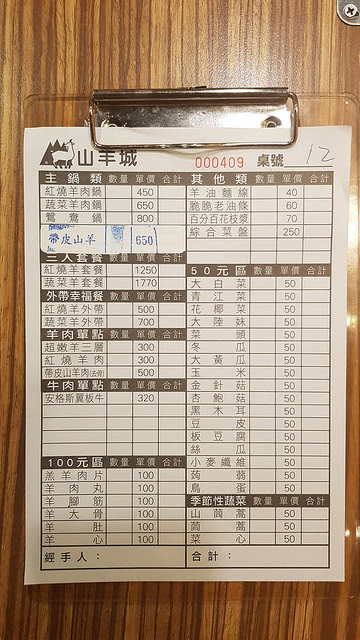 山羊城
000409 桌號 12
主鍋類 數量 單價 合計
紅燒羊肉鍋 450
蔬菜羊肉鍋 650
鴛鴦鍋 800
帶皮山羊 650
三人套餐 數量 單價 合計
紅燒羊套餐 1250
蔬菜羊套餐 1770
外帶幸福餐 數量 單價 合計
紅燒羊外帶 500
蔬菜羊外帶 700
羊肉單點 數量 單價 合計
超嫩羊三層 300
紅燒羊肉 300
帶皮山羊肉(去骨) 500
牛肉單點 數量 單價 合計
安格斯翼板牛 320
100元區 數量 單價 合計
羔羊肉片 100
羊肉丸 100
羊腳筋 100
羊大骨 100
羊肚 100
羊心 100
經手人：
其他類 數量 單價 合計
羊油麵線 40
脆脆老油條 60
百分百花枝漿 70
綜合菜盤 250
50元區 數量 單價 合計
大白菜 50
青江菜 50
花椰菜 50
大陸妹 50
菜頭 50
冬瓜 50
大黃瓜 50
玉米 50
金針菇 50
杏鮑菇 50
黑木耳 50
豆皮 50
板豆腐 50
絲瓜 50
小麥纖維 50
蒟蒻 50
鳥蛋 50
季節性蔬菜 數量 單價 合計
山茼蒿 50
茼蒿 50
菜心 50
合計：